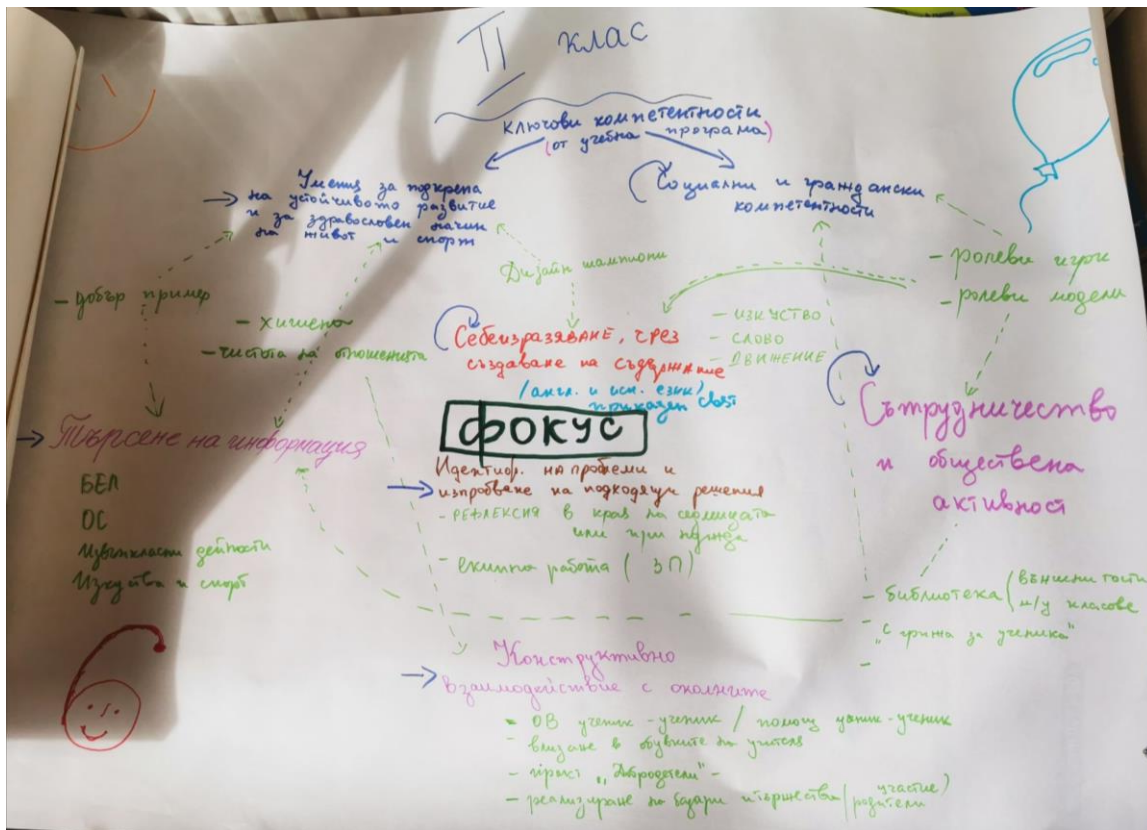 II клас
ключови компетентности
(от учебна програма)
Умения за подкрепа
на устойчивото развитие
и за здравословен начин
на живот и спорт
Социални и граждански
компетентности
- добър пример
- хигиена
- чистота на отношенията
Дизайн шампиони
- ролеви игри
- ролеви модели
Себеизразяване, чрез
създаване на съдържание
/англ. и исп. език/
приказен свят
- изкуство
- слово
- движение
Сътрудничество
и обществена
активност
Търсене на информация
БЕЛ
ОС
Извънкласни дейности
Изкуства и спорт
ФОКУС
Идентиф. на проблеми и
изпробване на подходящи решения
- РЕФЛЕКСИЯ в края на седмицата
или при нужда
- екипна работа (ЗП)
- библиотека (външни гости
м/у класове
- "с грижа за ученика"
-
Конструктивно
взаимодействие с околните
- ОВ ученик-ученик / помощ ученик-ученик
- влизане в обувките на учителя
- проект „Добродетели" -
- реализиране на базари и тържества (участие
родители)